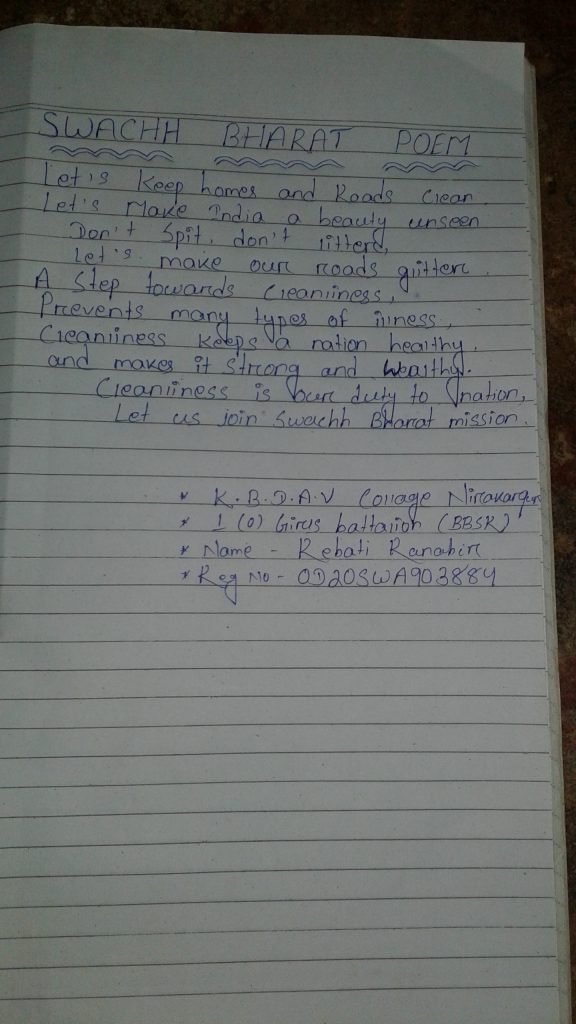 SWACHH BHARAT POEM
Let's Keep homes and Roads Clean.
Let's Make India a beauty unseen
Don't Spit, don't litter,
Let's make our roads glitter.
A Step towards Cleanliness,
Prevents many types of illness,
Cleanliness keeps a nation healthy.
and makes it strong and Wealthy.
Cleanliness is our duty to nation,
Let us join Swachh Bharat mission.
* K.B.D.A.V Collage Nirakarpur
* 1 (O) Girls battalion (BBSR)
* Name - Rebati Ranabir
* Reg No - OD20SWA903884